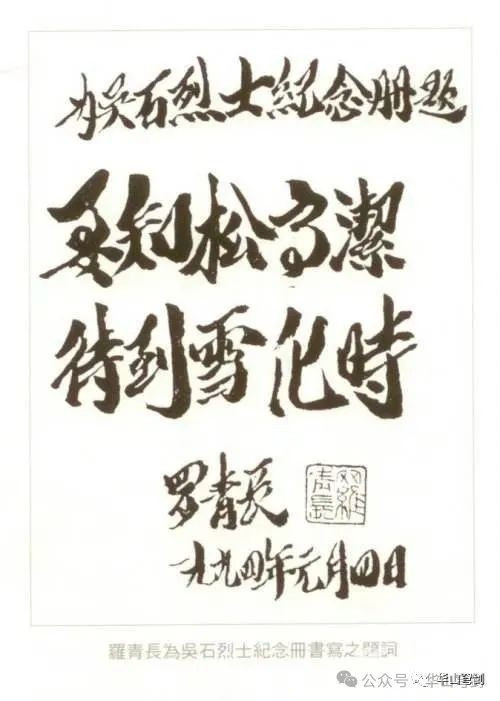 为吳石烈士紀念册题
要知松高潔
待到雪化時
罗青长
羅青長
一九九四年元月四日
羅青長為吳石烈士紀念冊書寫之題詞
公众号 华山穹剑